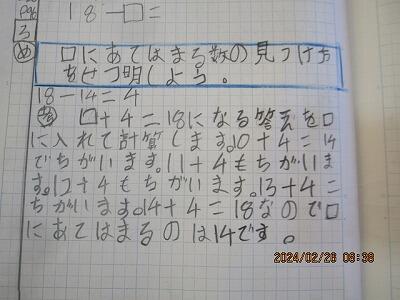 18-□=
3
め
□にあてはまる数の見つけ方
をせつ明しよう。
18-14=4
□+4=18になる答えを□
に入れて計算します。10+4=14
でちがいます。11+4もちがいま
す。12+4もちがいます。13+4=
ちがいます。14+4=18なので□
にあてはまるのは14です。
2024/02/26 08:38